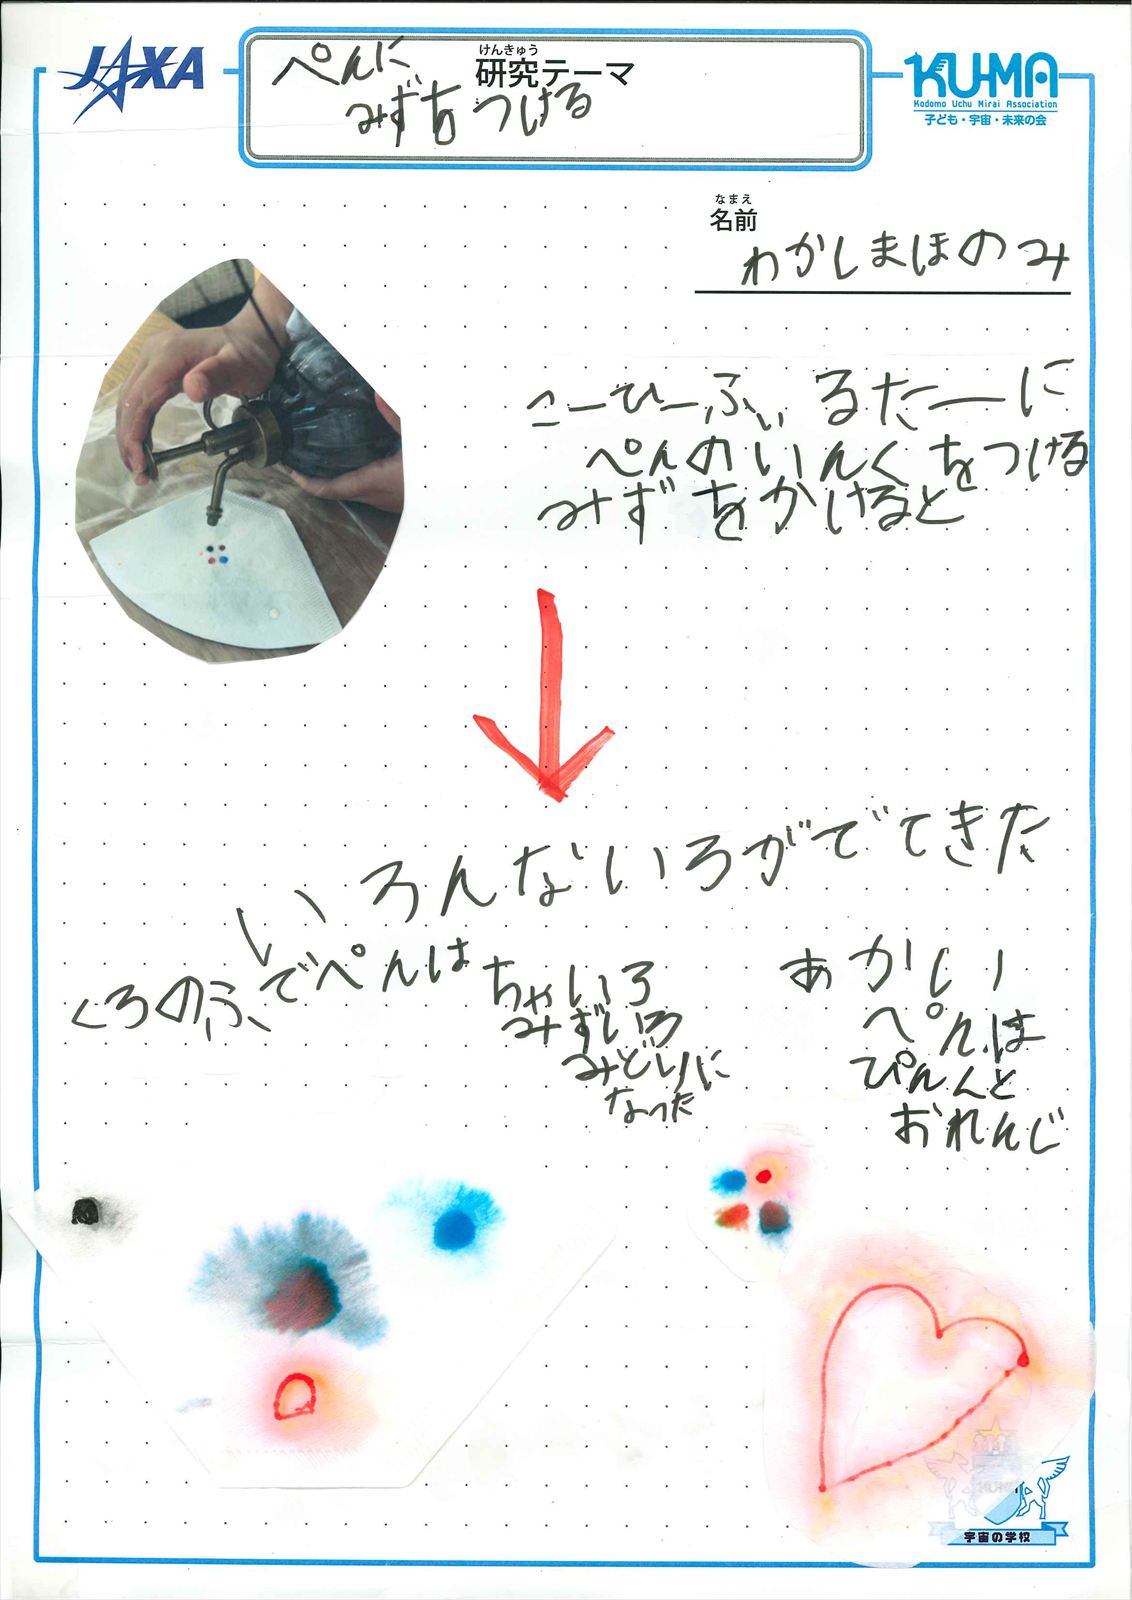 JAXA
けんきゅう
研究テーマ
ぺんに
みずをつける
KU-MA
Kodomo Uchu Mirai Association
子ども・宇宙・未来の会
なまえ
名前
わかしまほのみ
こーひーふぃるたーに
ぺんのいんくをつける
みずをかけると
いろんないろがでてきた
くろのふでぺんは
ちゃいろ
みずいろ
みどりに
なった
あかい
ぺんは
ぴんんと
おれんじ
宇宙の学校